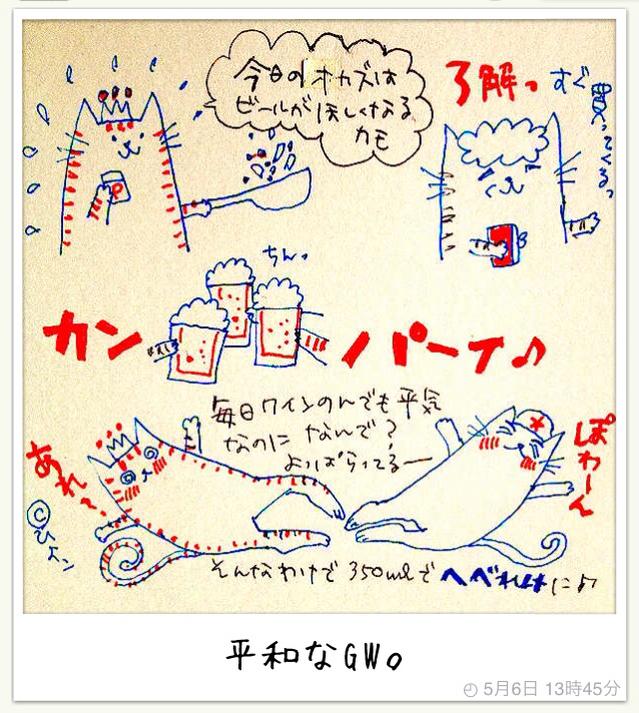 今日のオカズは
ビールがほしくなる
カモ
了解っ
すぐ
買ってくるっ
ちんっ
カンパーイ♪
毎日ワインのんでも平気
なのになんで?
よっぱらってるー
あれ〜
ぽわーん
©ひよン
そんなわけで350mlでへべれけに♪
平和なGW。
5月6日 13時45分